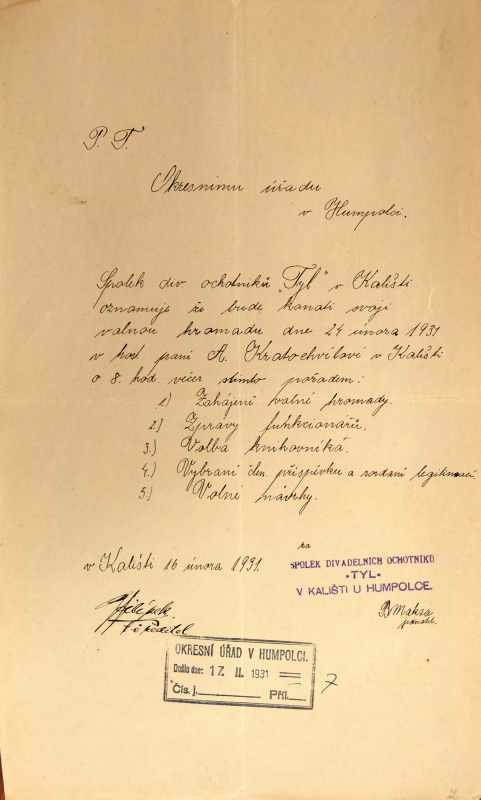 P. T.
Okresnímu úřadu
v Humpolci.
Spolek div. ochotníků "Tyl" v Kališti
oznamuje že bude konati svoji
valnou hromadu dne 24 února 1931
v host. paní A. Kratochvílové v Kališti
o 8. hod. večer stimto pořadem:
1.) Zahájení valné hromady.
2.) Zprávy funkcionářů.
3.) Volba knihovníka.
4.) Vybraní člen. příspěvku a vydaní legitimací
5.) Volné návrhy.
v Kališti 16 února 1931.
za
SPOLEK DIVADELNÍCH OCHOTNÍKŮ
"TYL"
V KALIŠTI U HUMPOLCE.
B Maksa
jednatel.
ředitel
OKRESNÍ ÚŘAD V HUMPOLCI.
Došlo dne: 17. II. 1931
Čís. j. Příl.
7